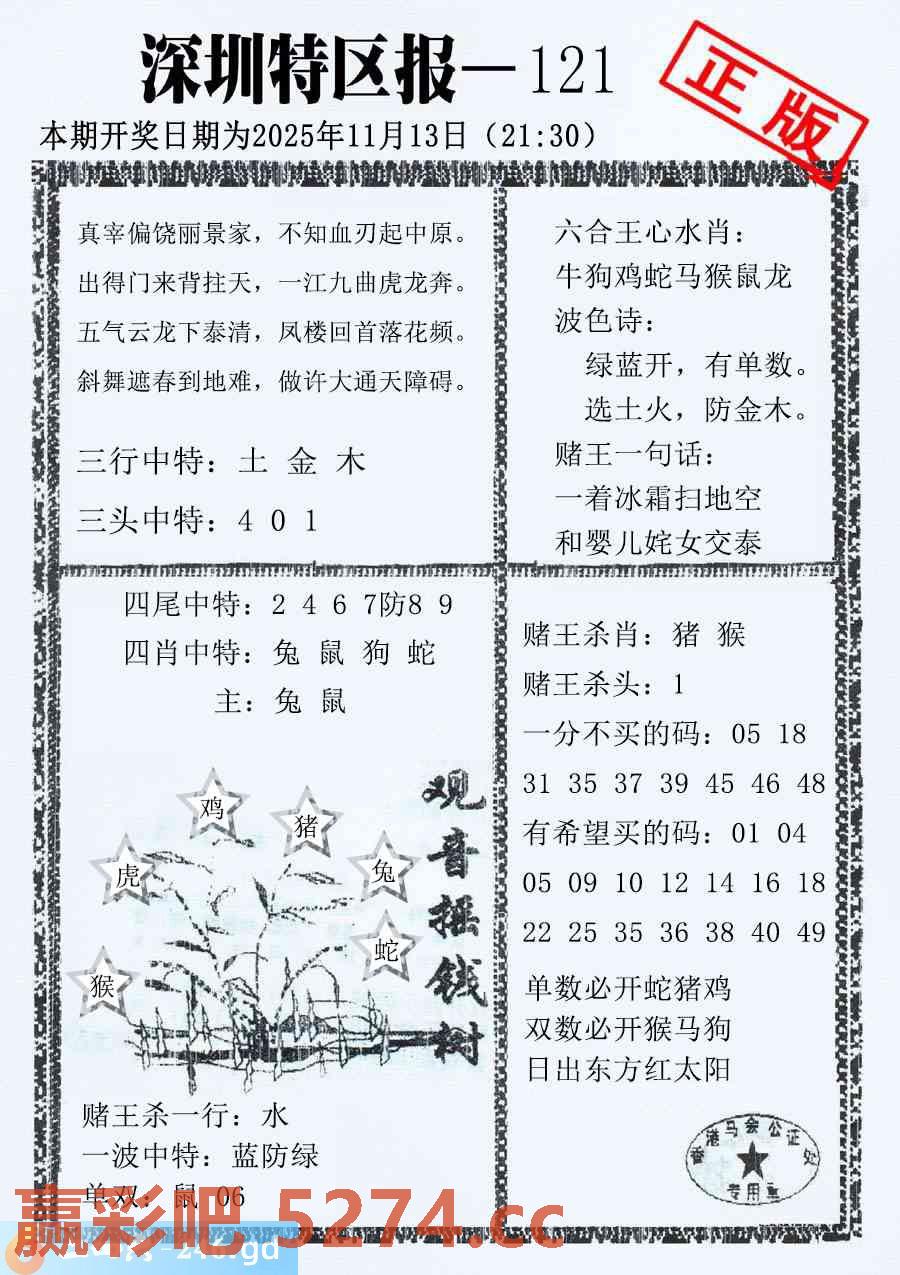 深圳特区报—121
正版
本期开奖日期为2025年11月13日（21:30）
真宰偏饶丽景家，不知血刃起中原。
出得门来背拄天，一江九曲虎龙奔。
五气云龙下泰清，凤楼回首落花频。
斜舞遮春到地难，做许大通天障碍。
三行中特：土 金 木
三头中特：4 0 1
六合王心水肖：
牛狗鸡蛇马猴鼠龙
波色诗：
绿蓝开，有单数。
选土火，防金木。
赌王一句话：
一着冰霜扫地空
和婴儿姹女交泰
四尾中特：2 4 6 7防8 9
四肖中特：兔 鼠 狗 蛇
主：兔 鼠
观音摇钱树
鸡
猪
虎
兔
蛇
猴
赌王杀一行：水
一波中特：蓝防绿
单双：鼠 06
赌王杀肖：猪 猴
赌王杀头：1
一分不买的码：05 18
31 35 37 39 45 46 48
有希望买的码：01 04
05 09 10 12 14 16 18
22 25 35 36 38 40 49
单数必开蛇猪鸡
双数必开猴马狗
日出东方红太阳
香港马会公证处
专用章
赢彩吧 5274.cc